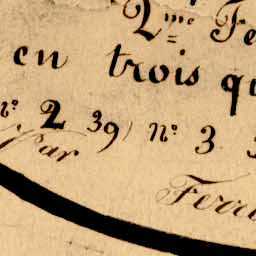 2me Fe
en trois qu
no. 2 39) no. 3
Par
Ferra